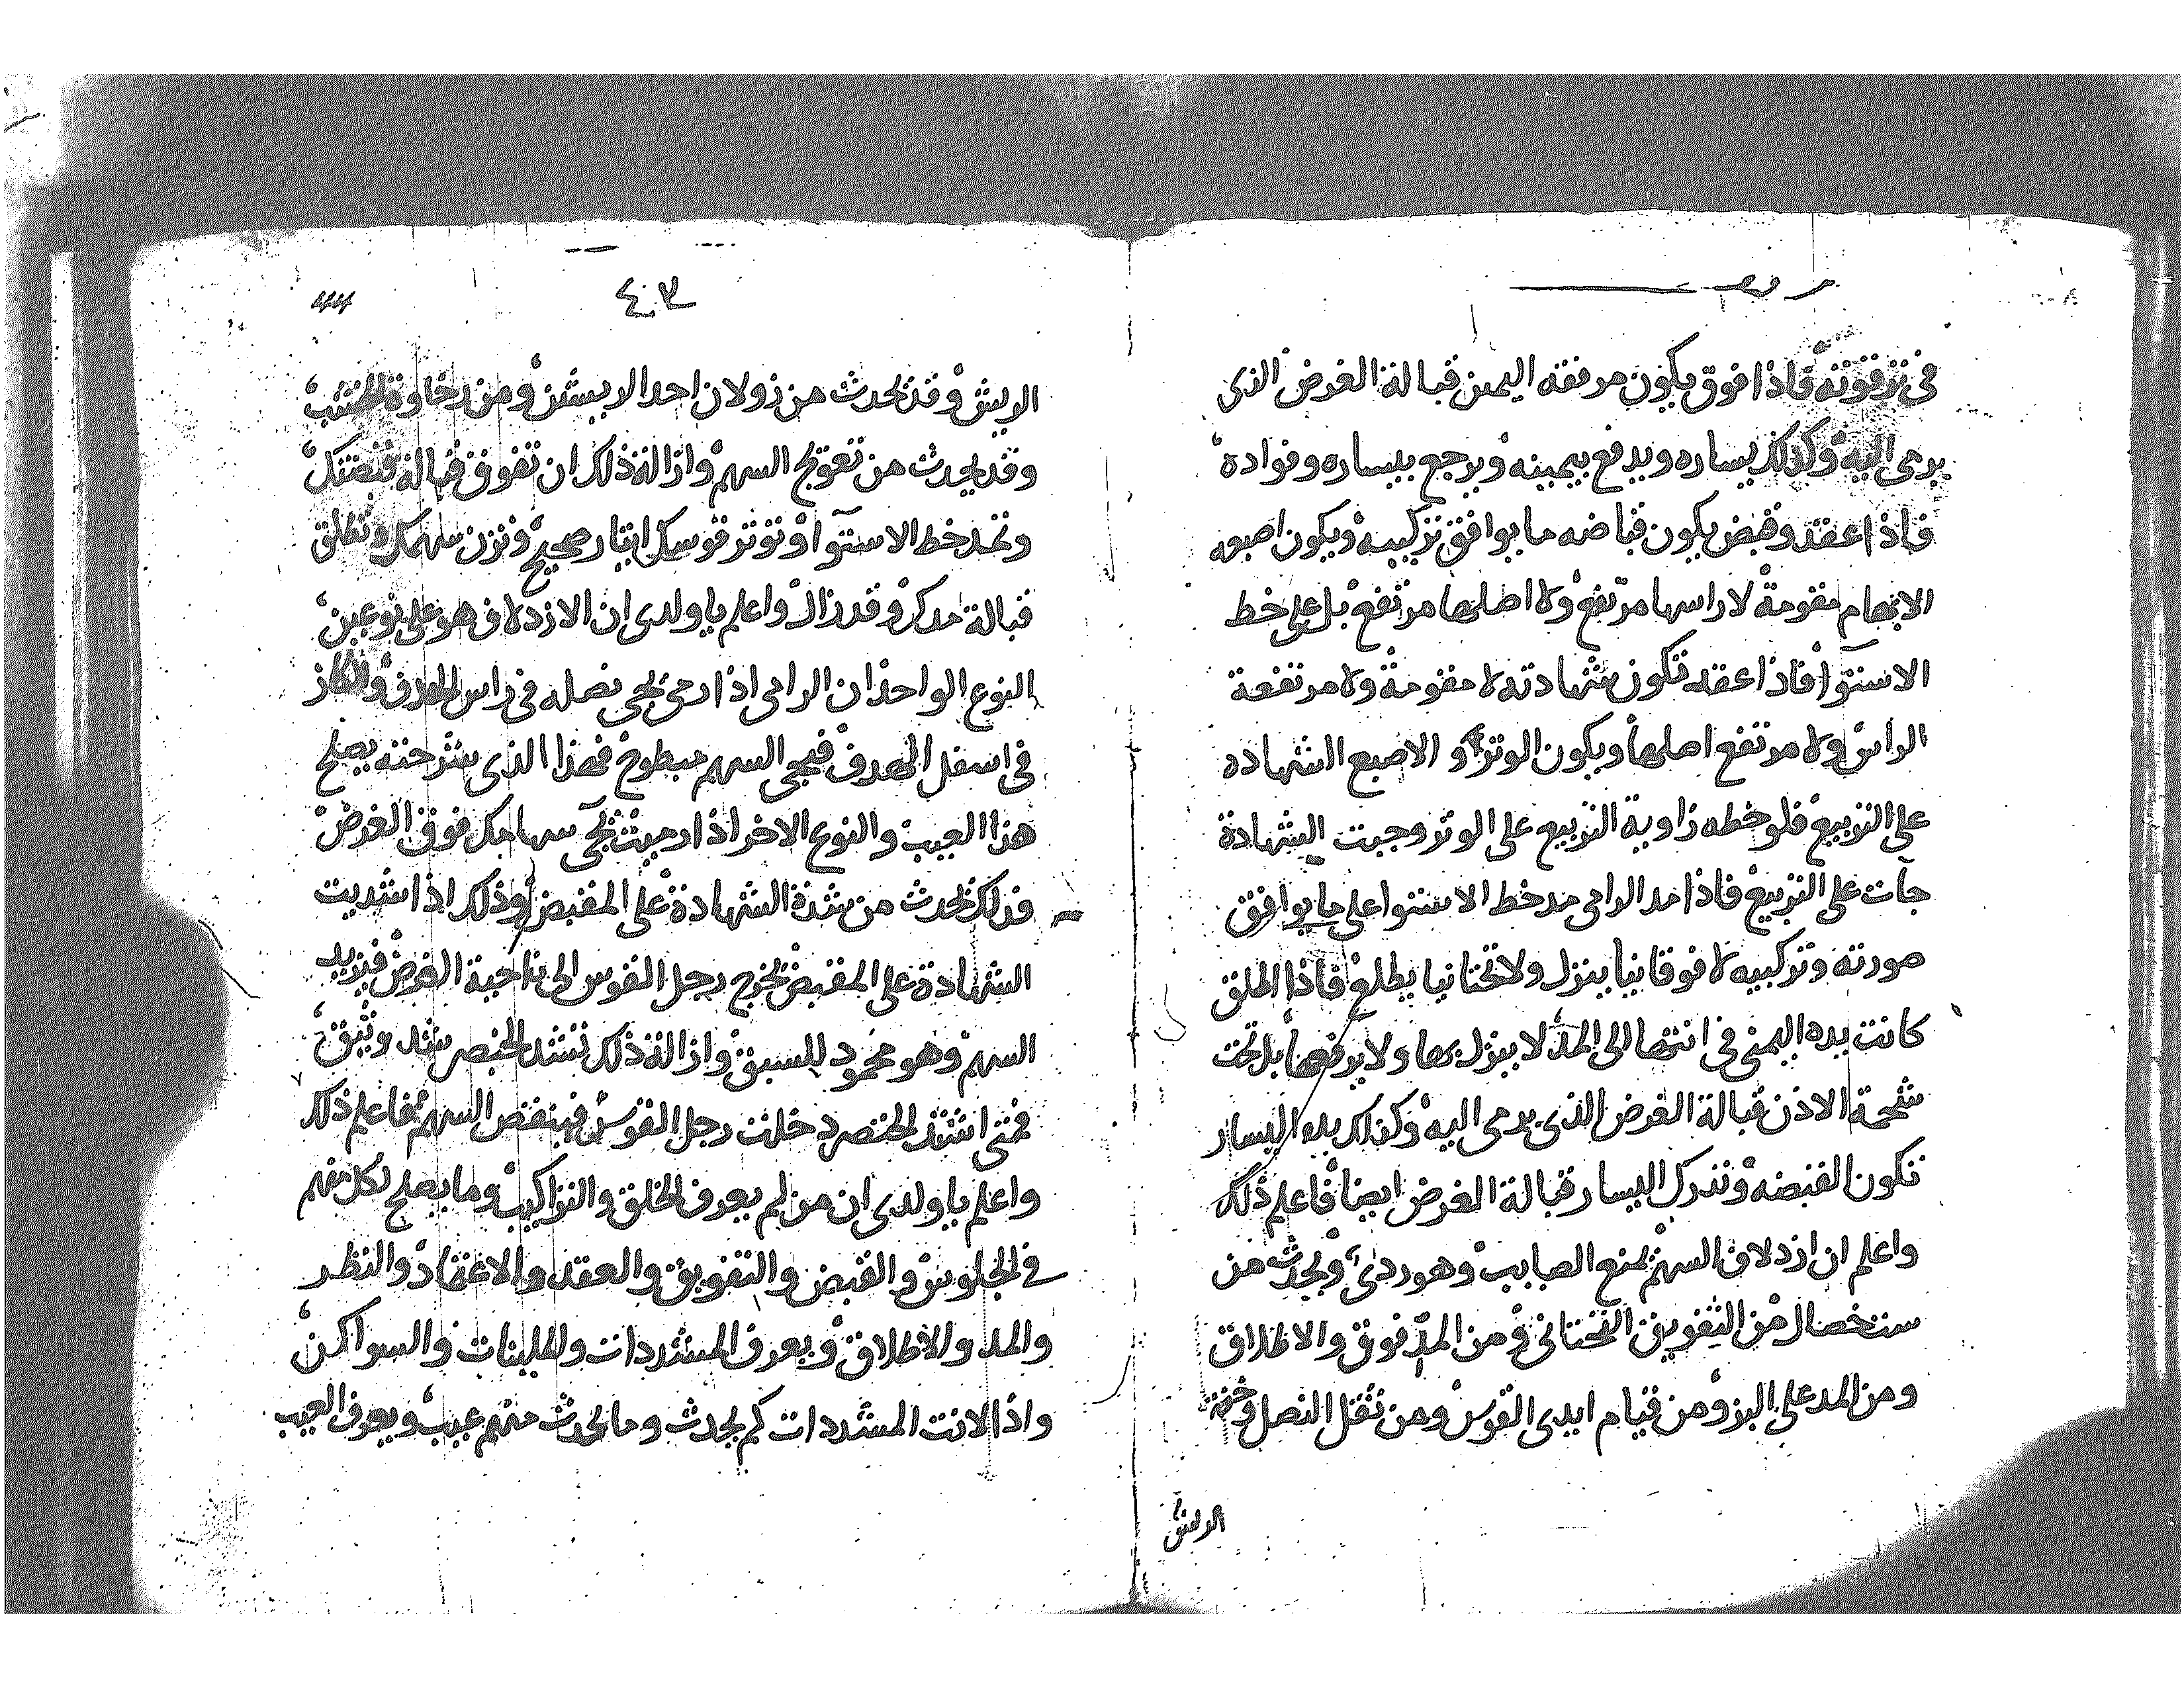 في تزفوته فاذا فوق يكون مرفقه اليمين قبالة الغرض الذى
يرمى اليه وكذلك يساره ويدفع بيمينه ويرجع بيساره وفواده
فاذا عقد وقبض يكون قباضه ما يوافق تركيبه ويكون اصبعه
الابهام مقومة لا راسها مرتفع ولا اصلها مرتفع بل على خط
الاستوا فاذا عقد تكون شهادته لا مقومة ولا مرتفعة
الراس ولا مرتفع اصلها ويكون الوتر و الاصبع الشهاده
على التربيع فلو خطه زاوية التربيع على الوتر وجبت الشهادة
جآت على التربيع فاذا مد الرامى مد خط الاستوا على ما يوافق
صورته وتركيبه لا فوقانيا ينزل ولا تحتانيا يطلع فاذا اطلق
كانت يده اليمنى فى انتها الى المد لا ينزل بها ولا يرفعها بل تحت
شحمة الاذن قبالة الغرض الذى يرمى اليه وكذلك يده اليسار
تكون القبضه وتدرك اليسار قبالة الغرض ايضا فاعلم ذلك
واعلم ان ازدلاق السهم يمنع الصايب وهو ردئ ويحدث من
ست خصال من التفويق التحتانى ومن المد فوق والاطلاق
ومن المد على البز ومن قيام ايدى القوس ومن ثقل النصل وخفة
الريش
٤٣
الريش وقد يحدث من زولان احد الاريشن ومن رخاوة الخشب
وقد يحدث من تعويج السهم وازالة ذلك ان تفوق قبالة قبضتك
وتمد خط الاستوآ او توتر قوسك ايتار صحيح وتزن سهمك وتطلق
قبالة مدك وقد زال واعلم يا ولدى ان الازدلاق هو على نوعين
النوع الواحد ان الرامى اذا رمى يجى نصله فى راس الهدف والكاز
فى اسفل الهدف فيجى السهم مبطوح فهذا الذى شرحته يصلح
هذا العيب والنوع الاخر اذا رميت تجى سهامك فوق الغرض
فذلك يحدث من شدة الشهادة على المقبض وذلك اذا اشديت
الشهادة على المقبض يخرج رجل القوس الى ناحية الغرض فيزيد
السهم وهو محمود للسبق وازالة ذلك تشد الخنصر شد وثيق
فمتى اشتد الخنصر دخلت رجل القوس فينقص السهم فاعلم ذلك
واعلم يا ولدى ان من لم يعرف الخلق والتراكيب وما يصلح لكل منهم
فى الجلوس والقبض والتفويق والعقد والاعتماد والنظر
والمد والاطلاق ويعرف المشددات والملينات والسواكن
واذا لانت المشددات كم يحدث وما يحدث منهم عيب ويعرف العيب